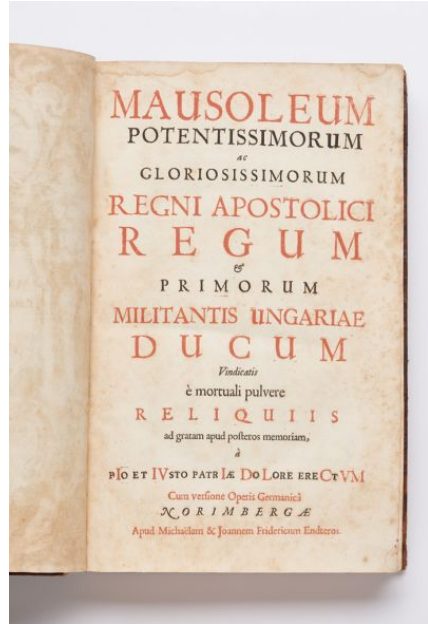 MAUSOLEUM
POTENTISSIMORUM
ac
GLORIOSISSIMORUM
REGNI APOSTOLICI
REGUM
&
PRIMORUM
MILITANTIS UNGARIAE
DUCUM
Vindicatis
è mortuali pulvere
RELIQUIIS
ad gratam apud posteros memoriam,
à
PIO ET IVSTO PATRIÆ DOLORE ERECTVM
Cum versione Operis Germanicâ
NORIMBERGÆ
Apud Michaëlem & Joannem Fridericum Endteros.